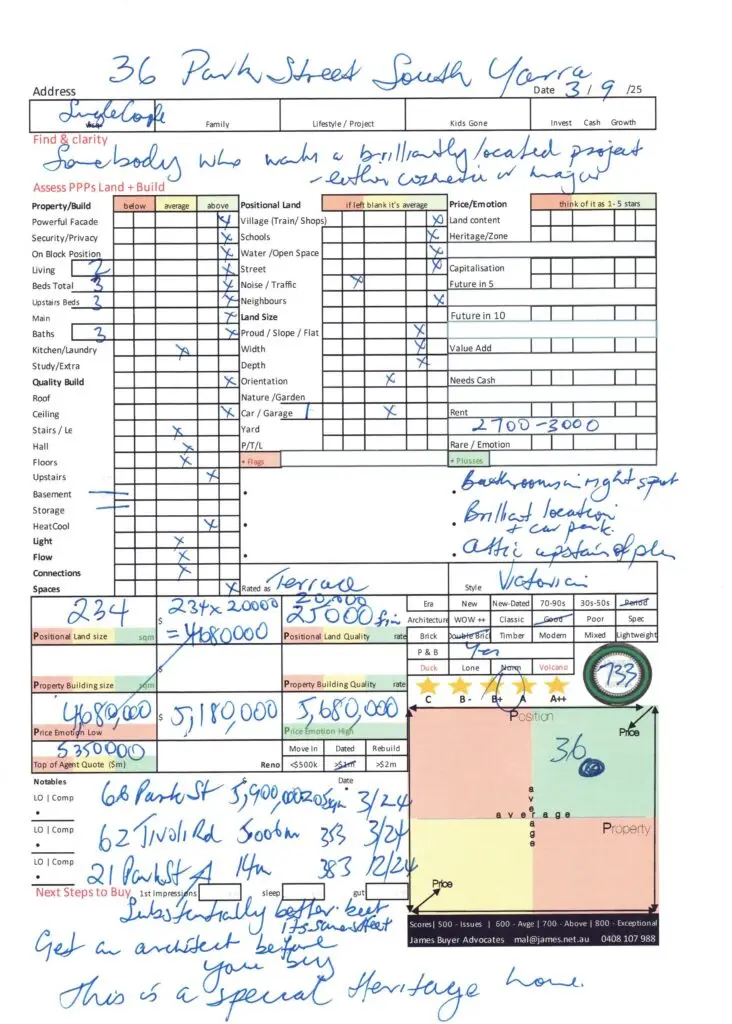 36 Park Street South Yarra
Address Date 3 / 9 /25
Single Couple Family Lifestyle / Project Kids Gone Invest Cash Growth
Find & clarity
Somebody who wants a brilliantly located project
- either cosmetic or major
Assess PPPs Land + Build
Property/Build below average above Positional Land if left blank it's average Price/Emotion think of it as 1- 5 stars
Powerful Facade x Village (Train/ Shops) x Land content
Security/Privacy x Schools x Heritage/Zone
On Block Position x Water /Open Space x
Living 2 x Street x Capitalisation
Beds Total 3 x Noise / Traffic x Future in 5
Upstairs Beds 3 x Neighbours x
Main x Land Size Future in 10
Baths 3 x Proud / Slope / Flat x
Kitchen/Laundry x Width x Value Add
Study/Extra Depth x
Quality Build x Orientation x Needs Cash
Roof Nature /Garden
Ceiling x Car / Garage 1 x Rent
Stairs / Le x Yard 2700-3000
Hall x P/T/L Rare / Emotion
Floors x + Flags + Plusses
Upstairs x • • Bathrooms in right spot
Basement
Storage • • Brilliant location
+ car park.
HeatCool x
Light x • • Attic upstairs
Flow x
Connections x
Spaces x Rated as Terrace Style Victorian
234 $ 234 x 20000 20,000
= 4680000 25000
Positional Land size sqm Positional Land Quality rate
Era New New-Dated 70-90s 30s-50s Period
Architecture WOW ++ Classic Good Poor Spec
Brick Double Bric Timber Modern Mixed Lightweight
P & B Yes
Duck Lone Norm Volcano 733
Property Building size sqm $ Property Building Quality rate
C B - B+ A A++
4680,000 $ 5,180,000 5,680,000
Price Emotion Low Price Emotion High
5350000 Move In Dated Rebuild
Top of Agent Quote ($m) Reno <$500k >$1m >$2m
Position
Price
36
average
average
Property
Price
Notables Date
LO | Comp 68 Park St 5,900,000 3/24
•
LO | Comp 62 Tivoli Rd 353 3/24
•
LO | Comp 21 Park St 383 12/24
•
Next Steps to Buy 1st Impressions sleep gut
Substantially better but
its same street
Get an architect before
you buy
This is a special Heritage home.
Scores| 500 - Issues | 600 - Avge | 700 - Above | 800 - Exceptional
James Buyer Advocates mal@james.net.au 0408 107 988